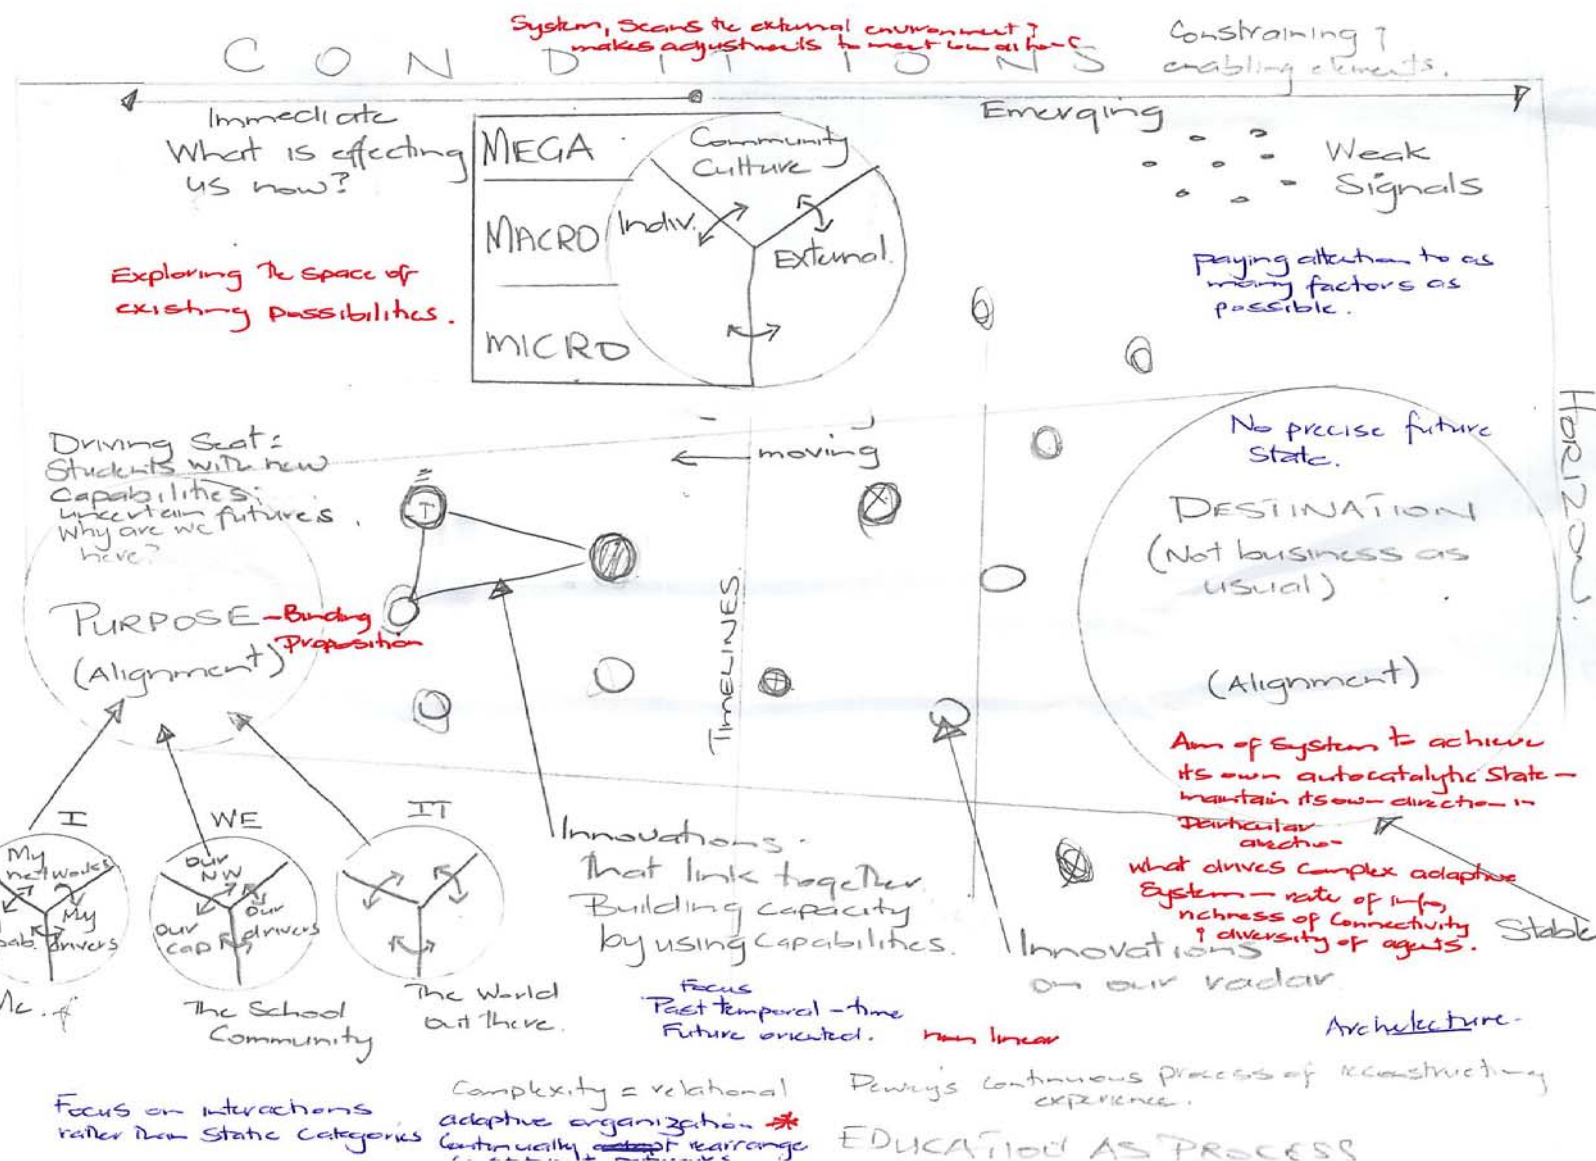 System, Scans the external environment?
makes adjustments to meet conditions
CONDITIONS
Constraining ?
enabling elements.
Immediate
What is effecting
us now?
MEGA
MACRO
MICRO
Community
Culture
Indiv.
External.
Emerging
Weak
Signals
Exploring the space of
existing possibilities.
paying attention to as
many factors as
possible.
HORIZON.
Driving Seat:
Students with new
Capabilities;
uncertain futures.
Why are we
here?
T
moving
No precise future
State.
DESTINATION
(Not business as
usual)
(Alignment)
PURPOSE - Binding
Proposition
(Alignment)
TIMELINES
Aim of System to achieve
its own autocatalytic State -
maintain its own direction in
Particular
direction
what drives Complex adaptive
System - rate of info,
richness of Connectivity
? diversity of agents.
Stable
I
My
networks
My
drivers
Me.
WE
our
NW
our
drivers
our
cap
The School
Community
IT
The World
out there.
Innovations.
That link together
Building capacity
by using capabilities.
Innovations
on our radar
Focus
Past temporal - time
Future oriented.
non linear
Architecture.
Focus on interactions
rather than Static Categories
Complexity = relational
adaptive organization *
Continually rearrange
Dewey's continuous process of reconstructing
experience.
EDUCATION AS PROCESS